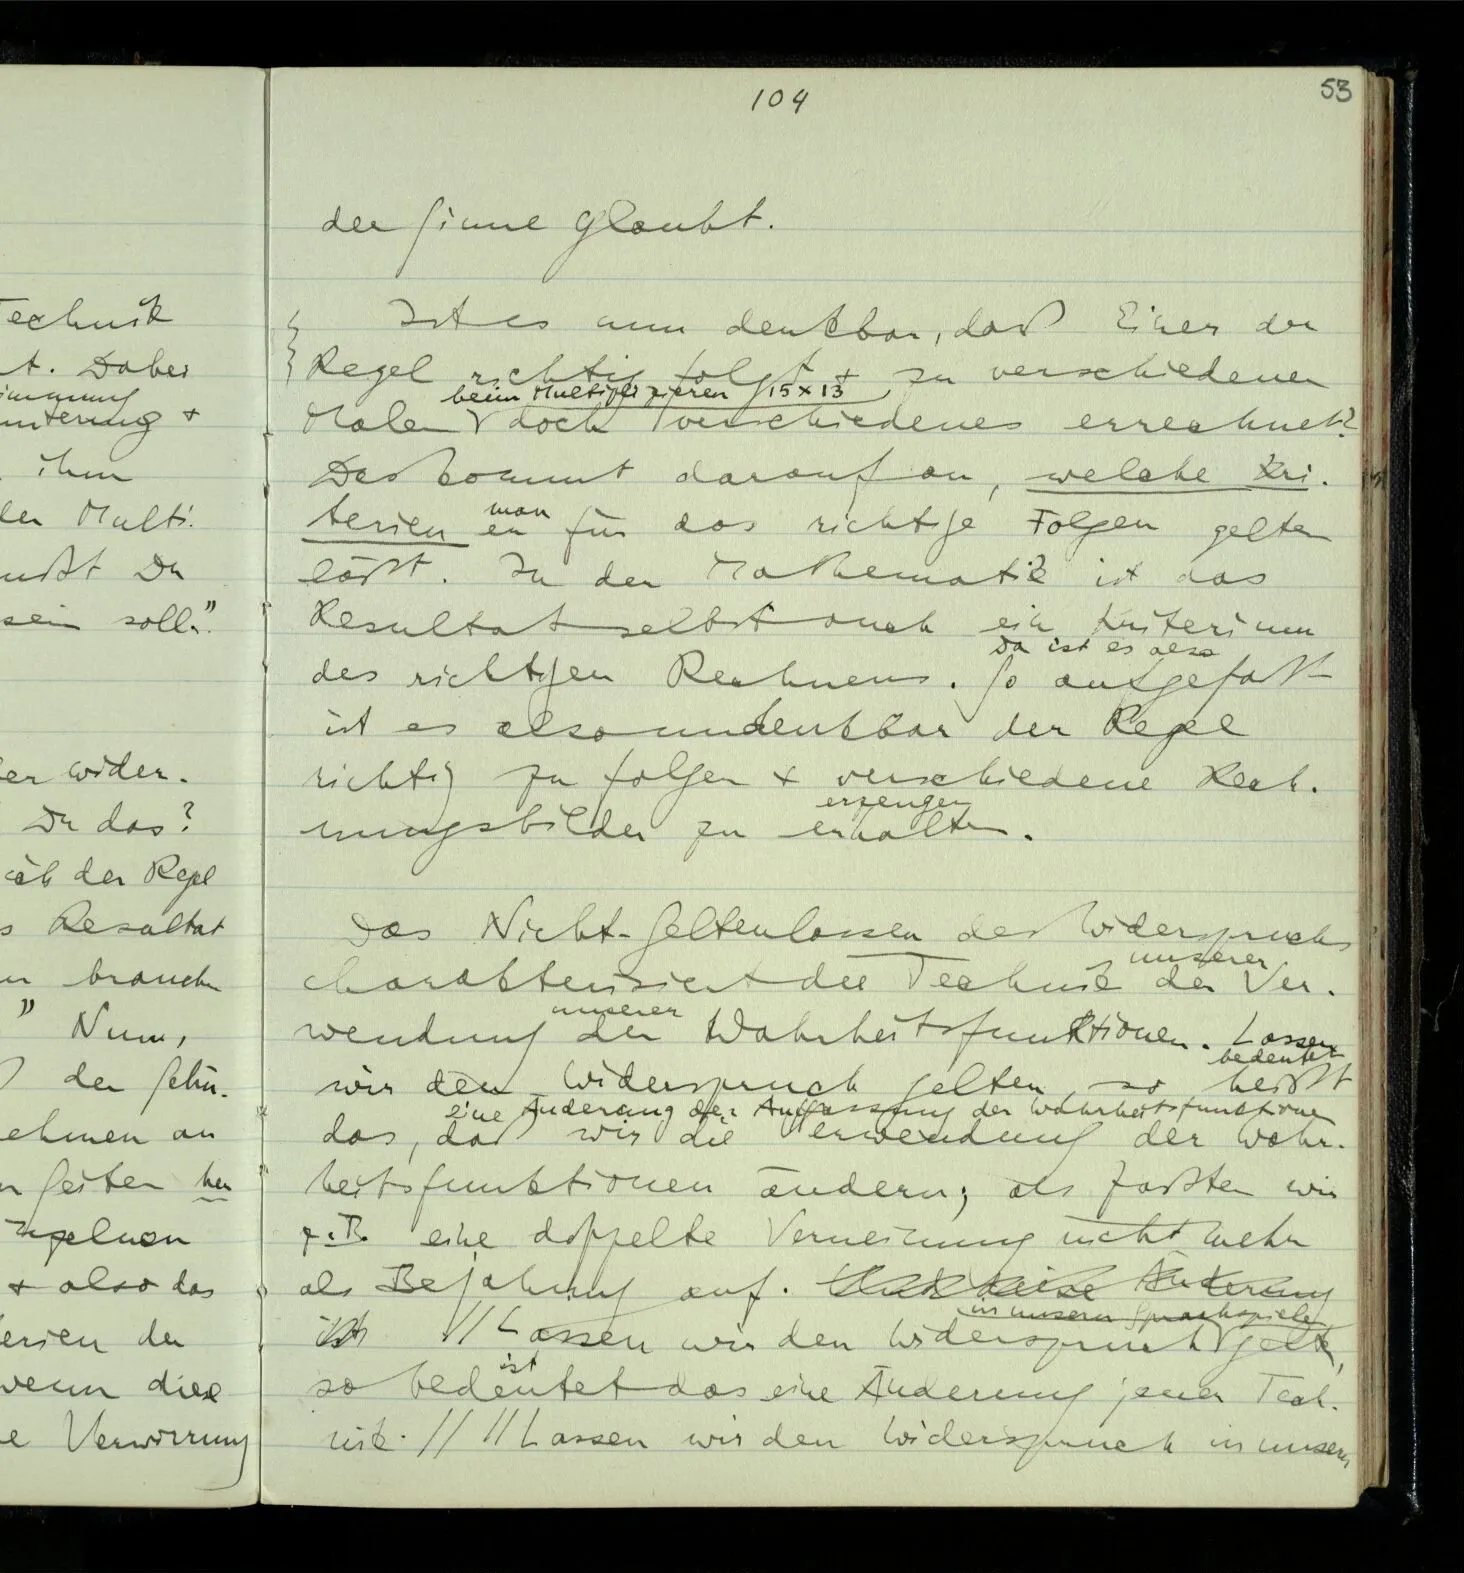 Technik
t. Dabei
immung
mterung +
ihm
der Multi-
mußt Du
sein soll."
er wider-
Du das?
ich der Regel
s Resultat
n brauche
" Nun,
den Gebü-
ehmen an
n Geiten her
+ also das
terien der
wenn diese
e Verwirrung
104
53
der Sinne glaubt.
Ist es nun denkbar, daß Einer der
Regel richtig folgt + zu verschiedenen
beim Multiplizieren 15 x 13
Malen doch verschiedenes errechnet?
Das kommt darauf an, welche Kri-
man
terien er für das richtige Folgen gelten
läßt. In der Mathematik ist das
Resultat selbst auch ein Kriterium
Da ist es also
des richtigen Rechnens. So aufgefaßt
ist es also undenkbar der Regel
richtig zu folgen + verschiedene Rech-
erzeugen
nungsbilder zu erhalten.
Das Nicht-Geltenlassen des Widerspruchs
unserer
charakterisiert die Technik der Ver-
unserer
wendung der Wahrheitsfunktionen. Lassen
bedeutet
wir den Widerspruch gelten so heißt
eine Änderung der Auffassung der Wahrheitsfunktionen
das, daß wir die Verwendung der Wahr-
heitsfunktionen ändern; als faßten wir
z.B. eine doppelte Verneinung nicht mehr
als Bejahung auf. Und diese Änderung
in unsern Sprachspielen
ist // Lassen wir den Widerspruch gelten,
ist
so bedeutet das eine Änderung jener Tech-
nik. // // Lassen wir den Widerspruch in unsern